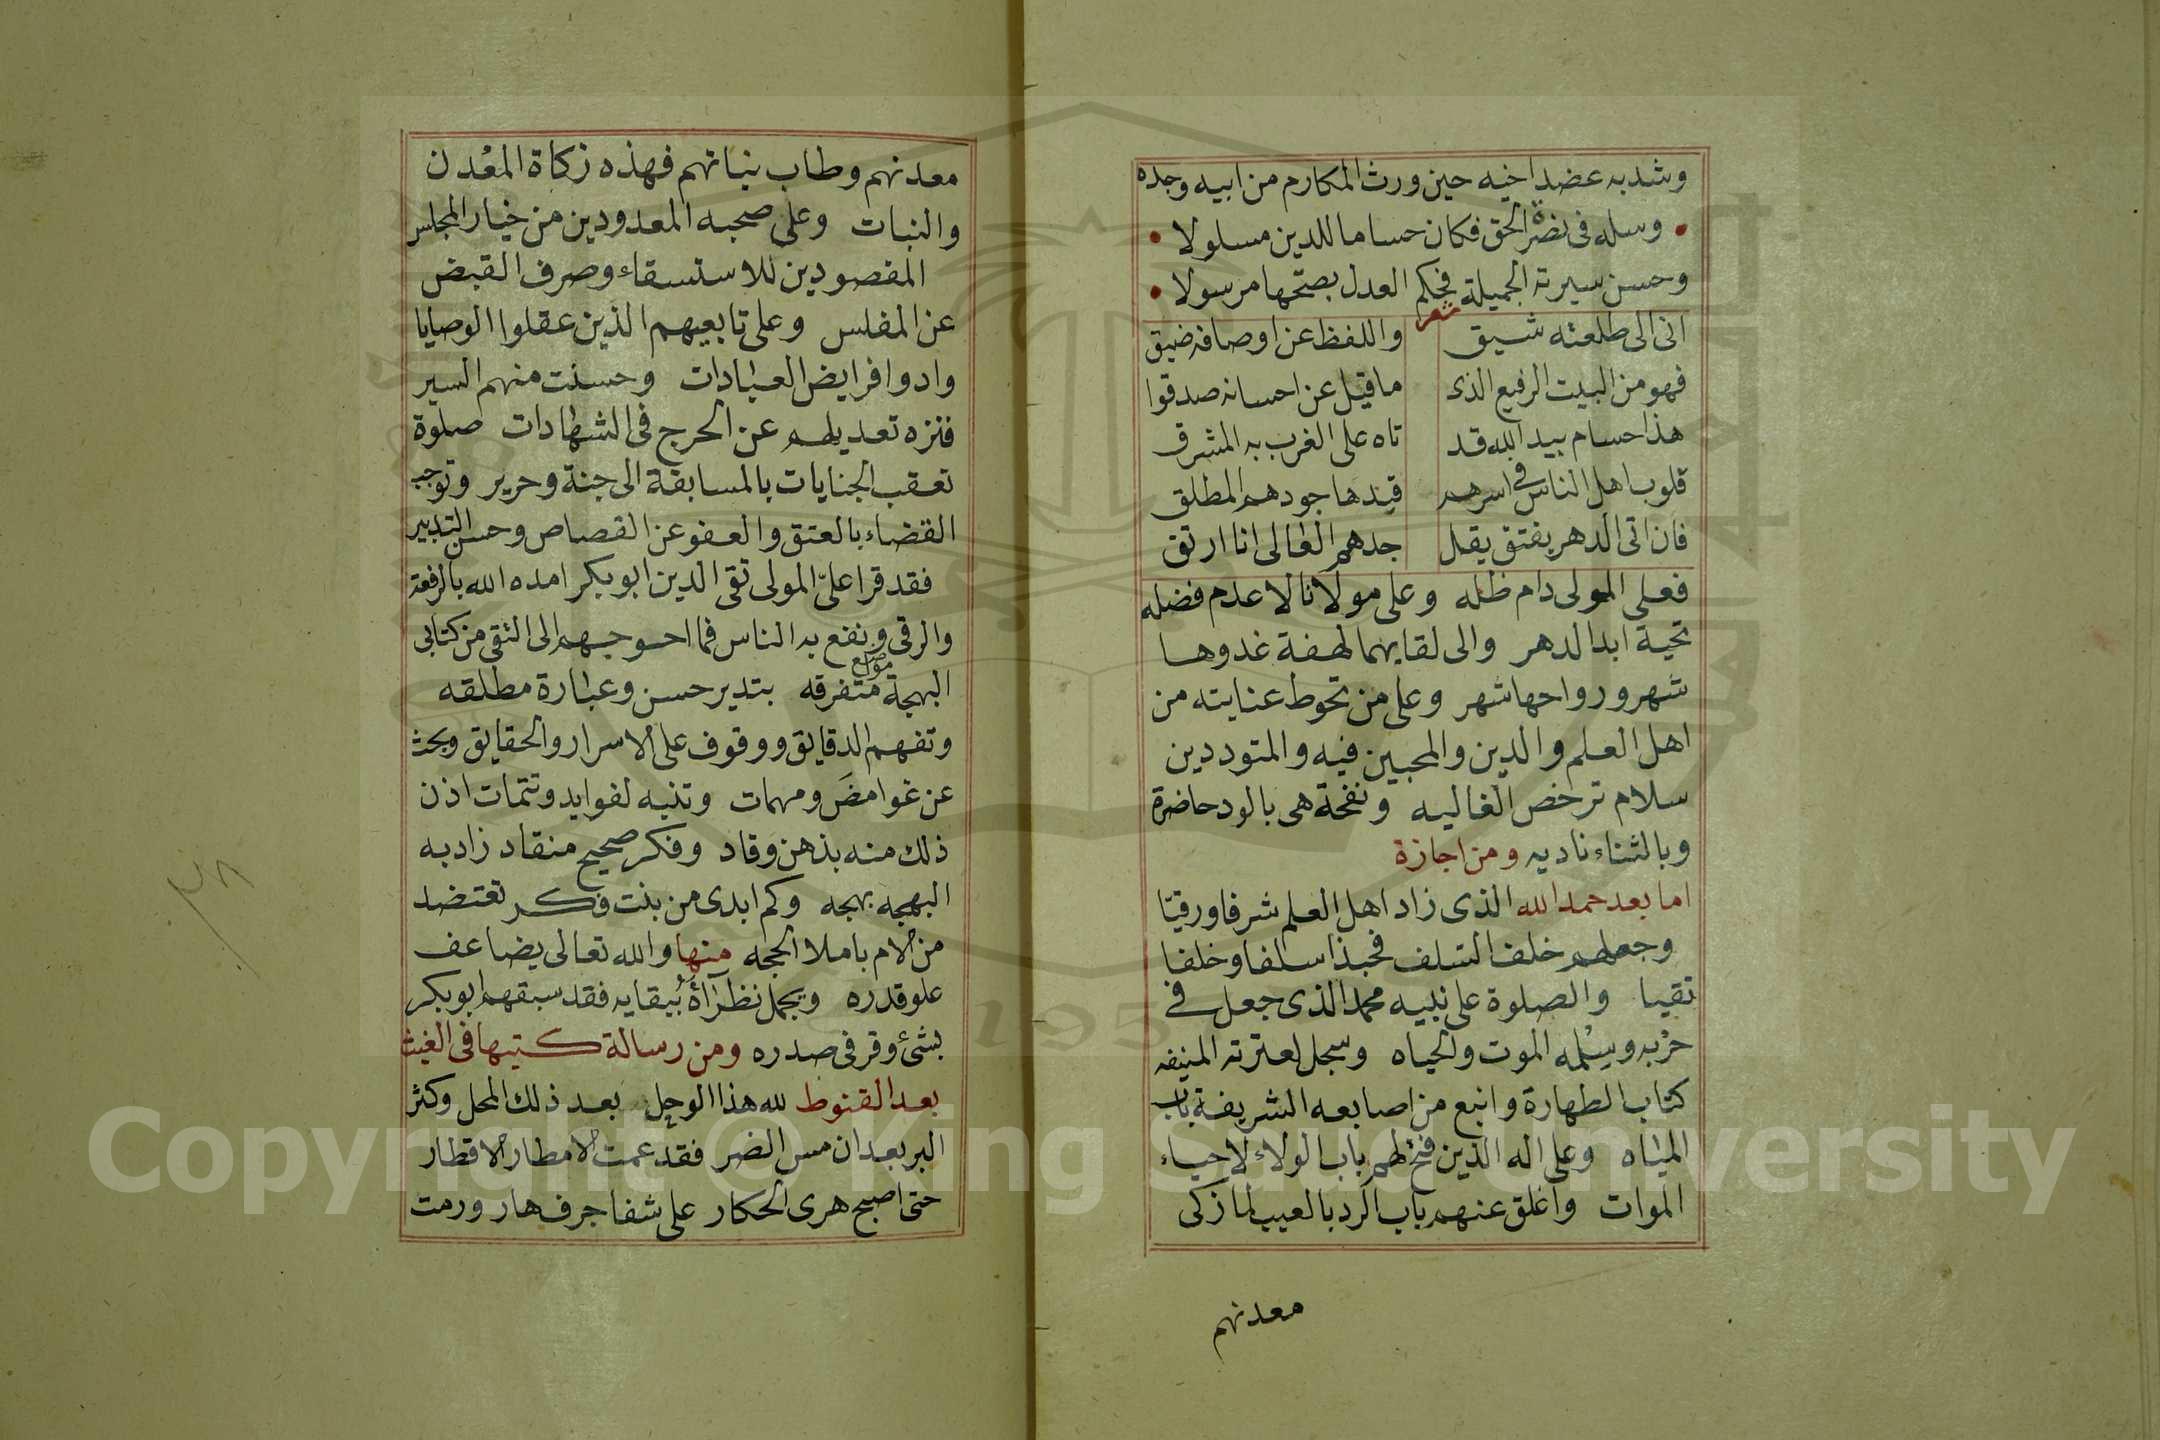 وشد به عضد اخيه حين ورث المكارم من ابيه وجده
وسله فى نصرة الحق فكان حساما للدين مسلولا
وحسن سيرته الجميلة فحكم العدل بصحتها مرسولا
شعر
انى الى طلعته شيق واللفظ عن اوصافه ضيق
فهو من البيت الرفيع الذى ما قيل عن احسانه صدقوا
هذا حسام بيد الله قد تاه على الغرب به المشرق
قلوب اهل الناس فى اسرهم قيدها جودهم المطلق
فان اتى الدهر بفتق يقل جدهم العالى انا ارتق
فعلى المولى دام ظله وعلى مولانا لا عدم فضله
تحية ابد الدهر والى لقايهما لهفة غدوها
شهر ورواحها شهر وعلى من تحوط عنايته من
اهل العلم والدين والمحبين فيه والمتوددين
سلام ترخص الغاليه ونفحة هى بالود حاضرة
وبالثناء ناديه ومن اجازة
اما بعد حمد الله الذى زاد اهل العلم شرفا ورقيا
وجعلهم خلف السلف فحبذا سلفا وخلفا
تقيا والصلوة على نبيه محمد الذى جعل فى
حربه وسلمه الموت والحياه وسجل لعترته المنيفه
كتاب الطهارة وانبع من اصابعه الشريفة باب
المياه وعلى اله الذين فتح لهم باب الولاء لاحياء
الموات واغلق عنهم باب الرد بالعيب لما زكى
معدنهم
معدنهم وطاب نباتهم فهذه زكاة المعدن
والنبات وعلى صحبه المعدودين من خيار المجلس
المقصودين للاستسقاء وصرف القبض
عن المفلس وعلى تابعيهم الذين عقلوا الوصايا
وادوا فرايض العبادات وحسنت منهم السير
فنزه تعديلهم عن الحرج فى الشهادات صلوة
تعقب الجنايات بالمسابقة الى جنة وحرير وتوجب
القضاء بالعتق والعفو عن القصاص وحسن التدبير
فقد قرا على المولى تقى الدين ابو بكر امده الله بالرفعة
والرقى ونفع به الناس فما احوجهم الى التقى من كتابى
البهجة مواضع متفرقه بتدبر حسن وعبارة مطلقه
وتفهم الدقايق ووقوف على الاسرار والحقايق وبحث
عن غوامض ومهمات وتنبه لفوايد وتتمات اذن
ذلك منه بذهن وقاد وفكر صحيح منقاد زاد به
البهجه بهجه وكم ابدى من بنت فكر تعتضد
من الام باملا الحجه منها والله تعالى يضاعف
علو قدره ويجمل نظرآءه ببقايه فقد سبقهم ابو بكر
بشئ وقر فى صدره ومن رسالة كتبها فى الغيث
بعد القنوط لله هذا الوجل بعد ذلك المحل وكثر
البر بعد ان مس الضر فقد عمت الامطار الاقطار
حتى اصبح هرى الحكار على شفا جرف هار ورمت
Copyright © King Saud University